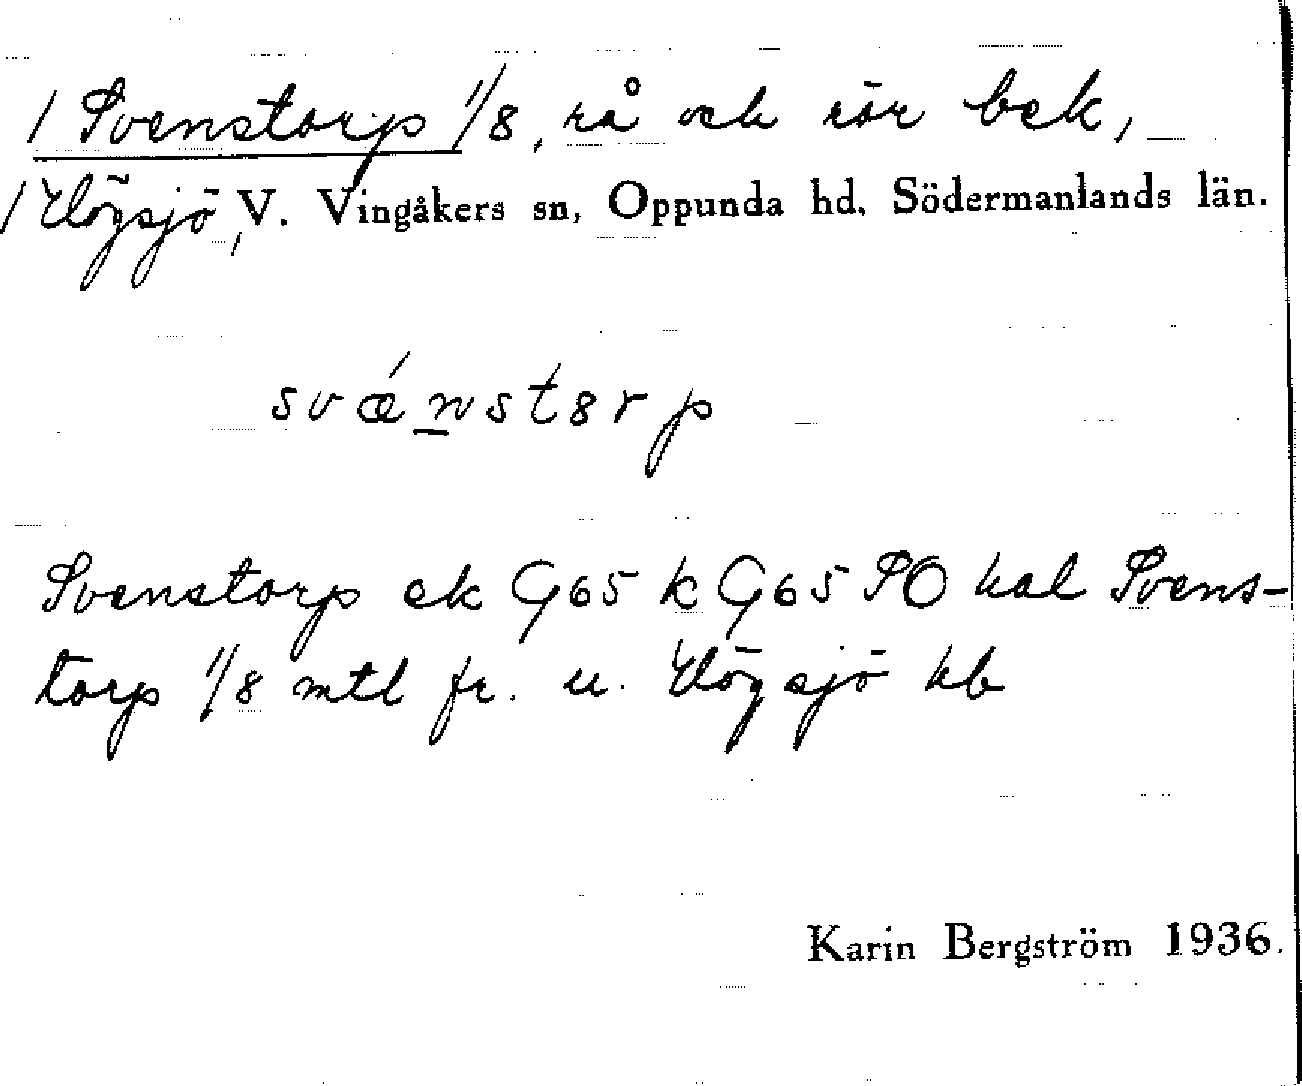 / Svenstorp 1/8, rå och rör bek,
/ Högsjö, V. Vingåkers sn, Oppunda hd, Södermanlands län.
svǽnst8rp
Svenstorp ek G65 k G65 SO hal Svens-
torp 1/8 mtl fr. u. Högsjö hb
Karin Bergström 1936.